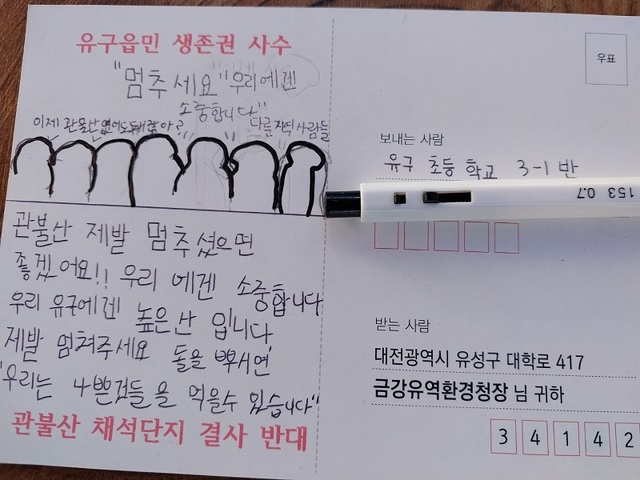 유구읍민 생존권 사수
"멈추세요" 우리에겐
소중합니다"
이제 관불산
다른 지역 사람들
관불산 제발 멈추셨으면
좋겠어요!! 우리 에겐 소중합니다
우리 유구에겐 높은 산 입니다
제발 멈춰주세요 돌을 뿌시면
"우리는 나쁜것들을 먹을수 있습니다"
관불산 채석단지 결사 반대
우표
보내는 사람
유구 초등 학교 3-1 반
153 0.7
받는 사람
대전광역시 유성구 대학로 417
금강유역환경청장 님 귀하
3 4 1 4 2